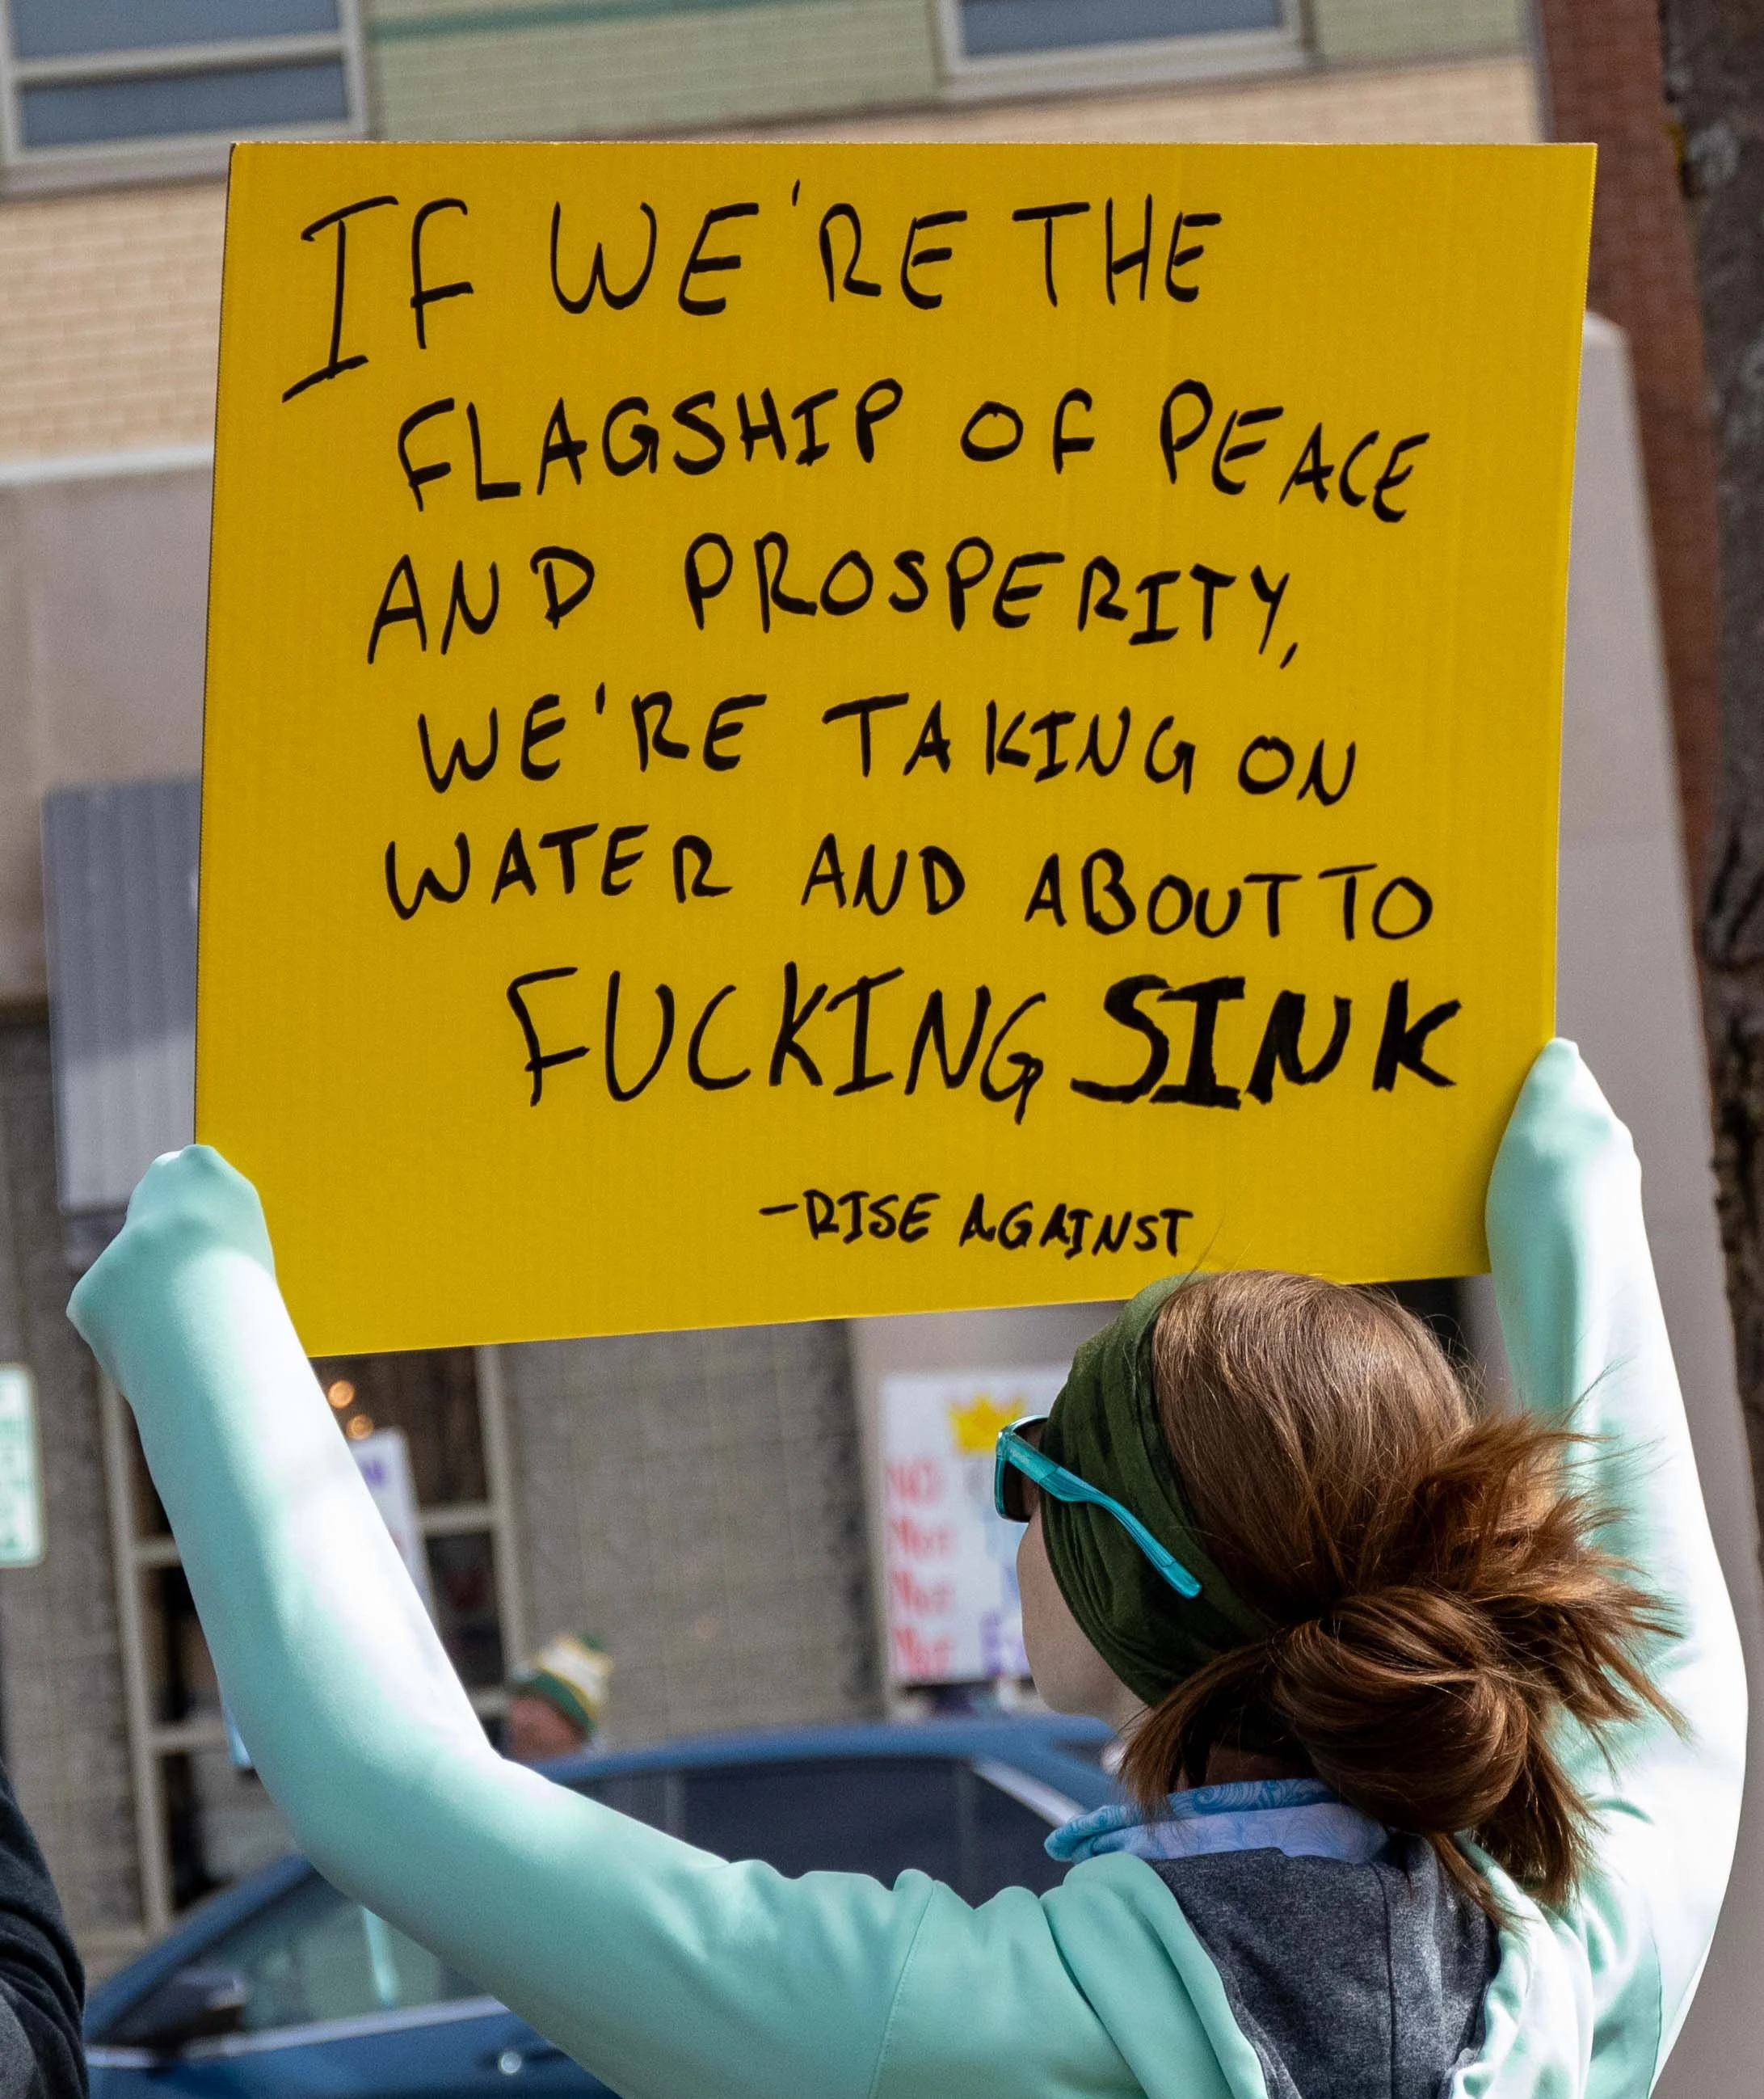 IF WE'RE THE
FLAGSHIP OF PEACE
AND PROSPERITY,
WE'RE TAKING ON
WATER AND ABOUT TO
FUCKING SINK
-RISE AGAINST
NO
Not
Not
Not